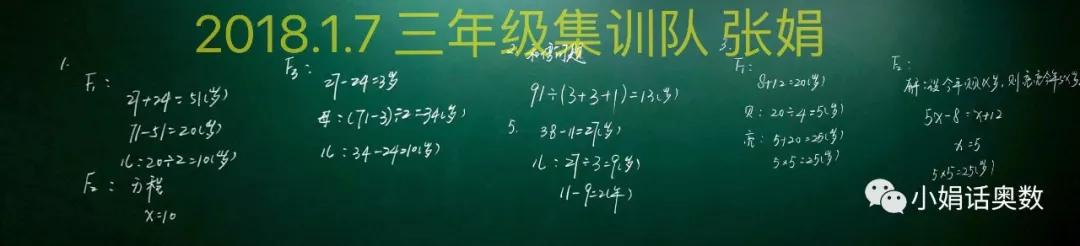 2018.1.7 三年级集训队 张娟
1.
F₁:
27+24=51(岁)
71-51=20(岁)
儿:20÷2=10(岁)
F₂:方程
x=10
F₃:
27-24=3岁
母:(71-3)÷2=34(岁)
儿:34-24=10(岁)
2.和倍问题
91÷(3+3+1)=13(岁)
5.
38-11=27(岁)
儿:27÷3=9(岁)
11-9=2(年)
3.
F₁:
8+12=20(岁)
贝:20÷4=5(岁)
亮:5+20=25(岁)
5×5=25(岁)
F₂:
解:设今年贝贝x岁,则亮亮今年5x岁
5x-8=x+12
x=5
5×5=25(岁)
小娟话奥数